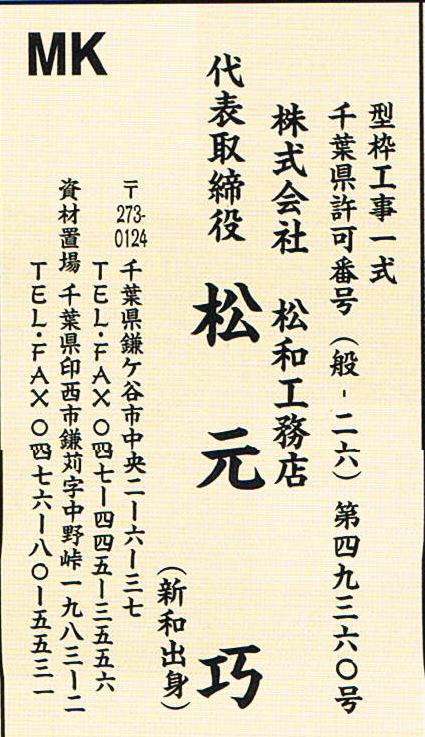 MK
型枠工事一式
千葉県許可番号（般-二六）第四九三六〇号
株式会社 松和工務店
代表取締役 松元 巧
（新和出身）
〒273-0124 千葉県鎌ケ谷市中央二ー六ー三七
TEL・FAX 〇四七ー四四五ー三五五六
資材置場 千葉県印西市鎌苅字中野峠一九八三ー二
TEL・FAX 〇四七六ー八〇ー五五三一